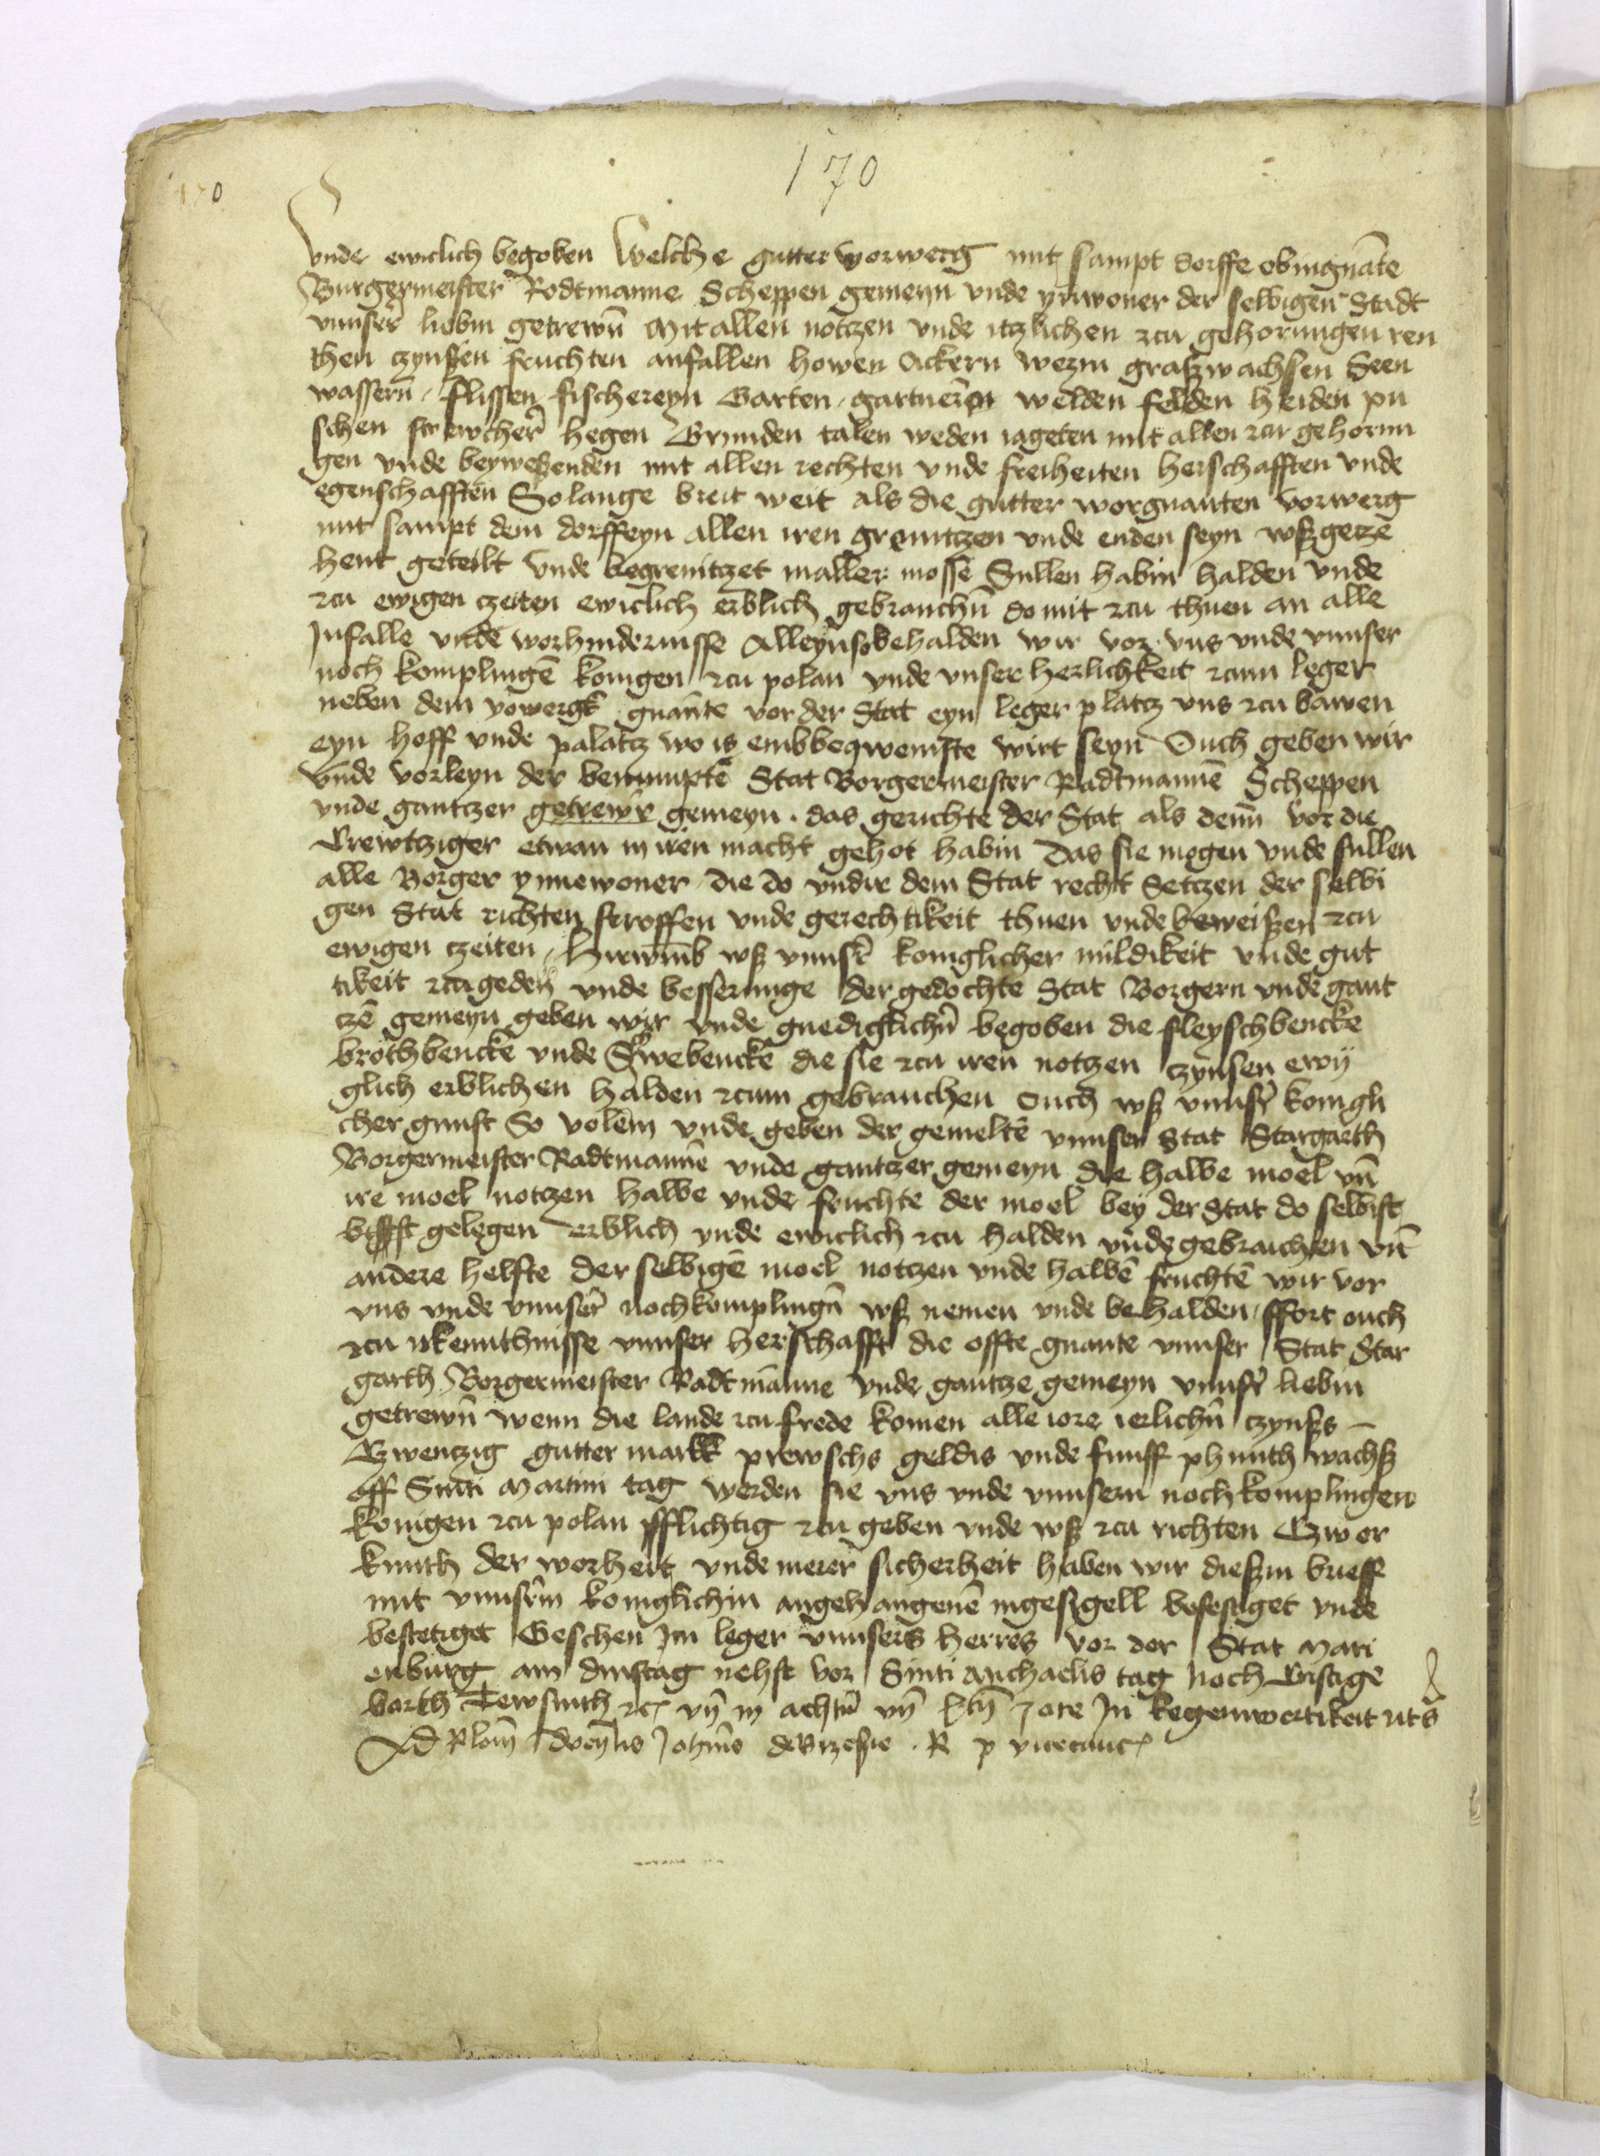 170
170
vnde ewiclich begoben Welche gutter vorwerg mit sampt dorffe obingnāte
Burgermeister Rodtmanne Scheppen gemeyn vnde ynwoner der selbigen Stadt
vnnser liebin getrewn̄ Mit allen notczen vnde itzlichen zcu gehorungen ren
then czynsen fruchten anfallen howen Ackern wezin graszwachsen Seen
wassern̄ flissen fischereyn Garten gartnern welden felden heiden pu
schen strewcher hegen Grunden talen weden iageten mit allen zcu gehorun
gen vnde beywesenden mit allen rechten vnde freiheiten herschafften vnde
egenschafften So lange breit weit als die gutter vorgnanten vorwerg
mit sampt dem dorffe yn allen iren grenitczen vnde enden seyn wszgecze
hent geteilt vnde begrenitczet in aller mosse Sullen habin halden vnde
zcu ewigen czeiten ewiclich erblich gebrauchn̄ do mit zcu thuen an alle
Infalle vnde vorhindernisse Alleyn so behalden wir vor vns vnde vnnser
noch komplingē konigen zcu polan vnde vnser herlichkeit zcum leger
neben dem vowergk gnante vor der Stat eyn leger platcz vns zcu bawen
eyn hoff vnde palatcz wo is em beqwemste wirt seyn Ouch geben wir
vnde vorleyn der benumptē Stat Borgermeister Radtmannē Scheppen
vnde gantczer getrewr gemeyn das gerichte der Stat als denn vor die
Crewtziger etwan in iren macht gehot habin Das sie mogen vnde sullen
alle Borger ynnewoner die do vndir dem Stat recht Setczen der selbi
gen Stat richten stroffen vnde gerechtikeit thuen vnde beweiszen zcu
ewigen czeiten Hirwmb wsz vnnser koniglicher mildikeit vnde gut
tikeit zcu gedey vnde besserunge der gedochte Stat Borgern vnde gant
czē gemeyn geben wir vnde gnediglichn̄ begoben die fleyschbencke
brothbencke vnde Schwebencke die sie zcu iren notzen czynsen ewy
glich erblichen halden zcum gebrauchen Ouch wsz vnnser konigli
cher gunst So volem vnde geben der gemeltē vnnser Stat Stargarth
Borgermeister Radtmanne vnde gantczer gemeyn die halbe moel vn̄
ire moel notczen halbe vnde fruchte der moel bey der Stat do selbist
gelegen erblich vnde ewiclich zcu halden vnde gebrauchen vn̄
andere helfte der selbigē moel notczen vnde halbē fruchtē wir vor
vns vnde vnnser nochkomplingn̄ wsz nemen vnde behalden ffort ouch
zcu irkenntnisse vnnser herschafft die offte gnante vnnser Stat Star
garth Borgermeister Radtmanne vnde gantcze gemeyn vnnser liebin
getrewn̄ wenn die lande zcu frede komen alle iore ierlichn̄ czynses
Czwenczig gutter markk prewschs geldis vnde funff phunth wachsz
off Sinti Martini tag werden sie vns vnde vnnsern nochkomplingen
konigen zcu polan pflichtig zcu geben vnde wsz zcu richten Czw or
kunth der worheit vnde merer sicherheit haben wir dieszin brieff
mit vnnserm koniglichin angehangenē ingesigell befestiget vnde
bestetiget Geschen Im leger vnnsers herres vor der Stat Mari
enburg am dinstag nehst vor Sinti Michaelis tag Noch Cristige
borth Tewsinth vn̄ in achtn̄ vn̄ Jore In kegenwortikeit
Ad Rlom̄ Johīs